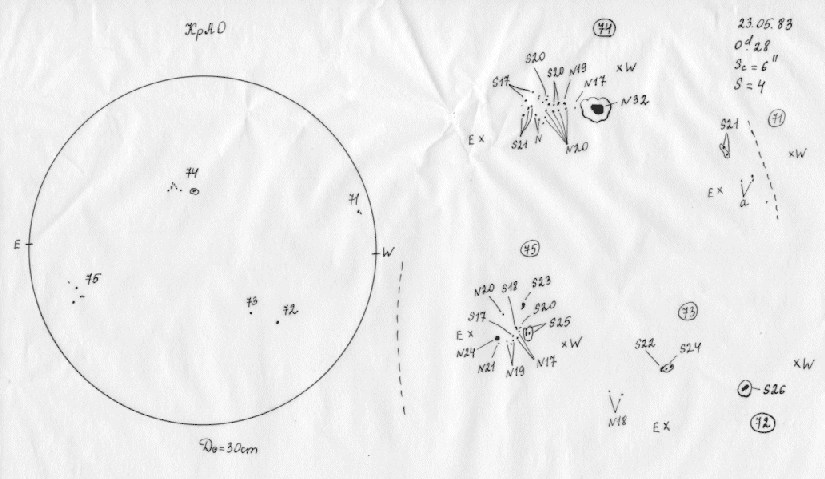 КрАО
74
71
E
W
75
73
72
D⊙=30cm
23.05.83
0ᵈ.28
Sc = 6"
S = 4
74
S20
S20
N19
S17
N17
xW
N32
E x
S21
N
N20
71
S21
xW
E x
a
75
N20
S18
S23
S17
S20
S25
E x
xW
N24
N21
N19
N17
73
S22
S24
N18
E x
xW
S26
72